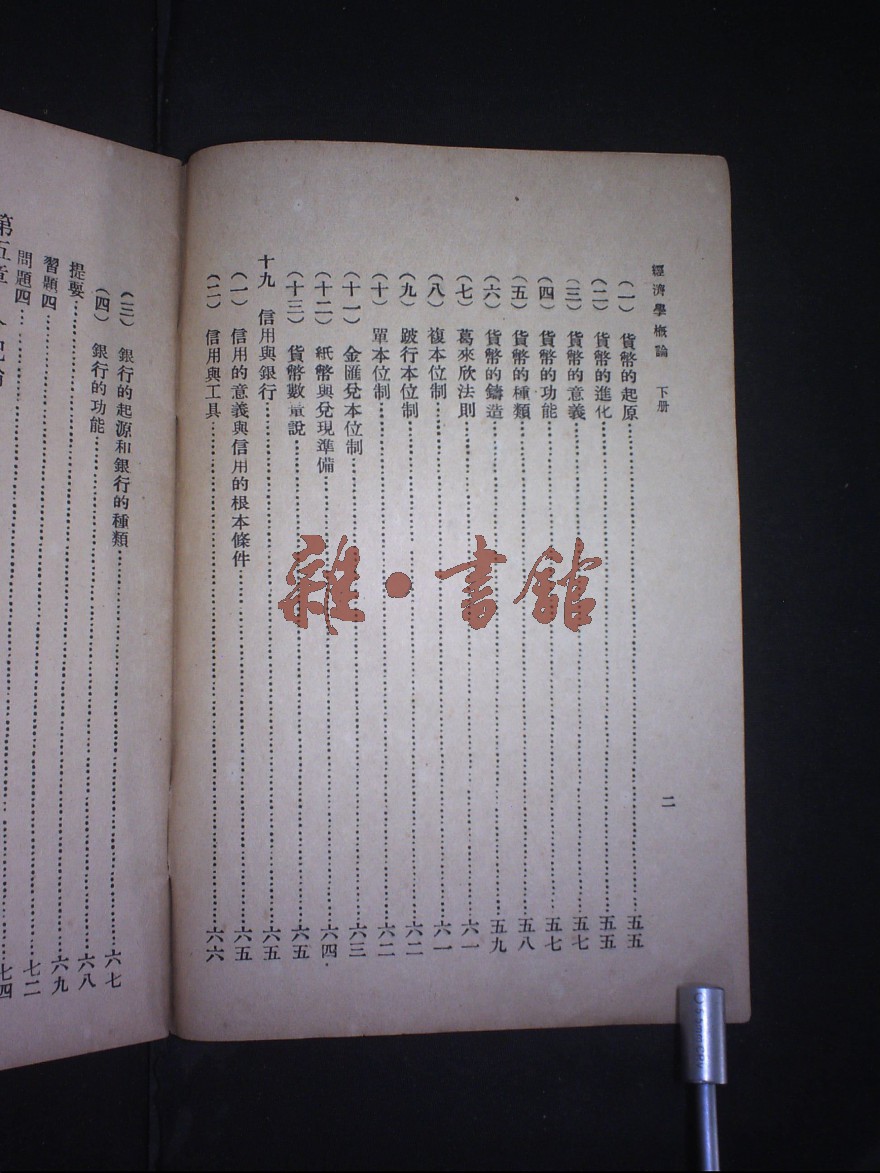 經濟學概論 下册
二
(一) 貨幣的起原 五五
(二) 貨幣的進化 五五
(三) 貨幣的意義 五七
(四) 貨幣的功能 五七
(五) 貨幣的種類 五八
(六) 貨幣的鑄造 五九
(七) 葛來欣法則 六一
(八) 複本位制 六一
(九) 跛行本位制 六二
(十) 單本位制 六二
(十一) 金匯兌本位制 六三
(十二) 紙幣與兌現準備 六四
(十三) 貨幣數量說 六五
十九 信用與銀行 六五
(一) 信用的意義與信用的根本條件 六五
(二) 信用與工具 六六
(三) 銀行的起源和銀行的種類 六七
(四) 銀行的功能 六八
提要 六九
習題四 七二
問題四 七四
第五章
雜·書館